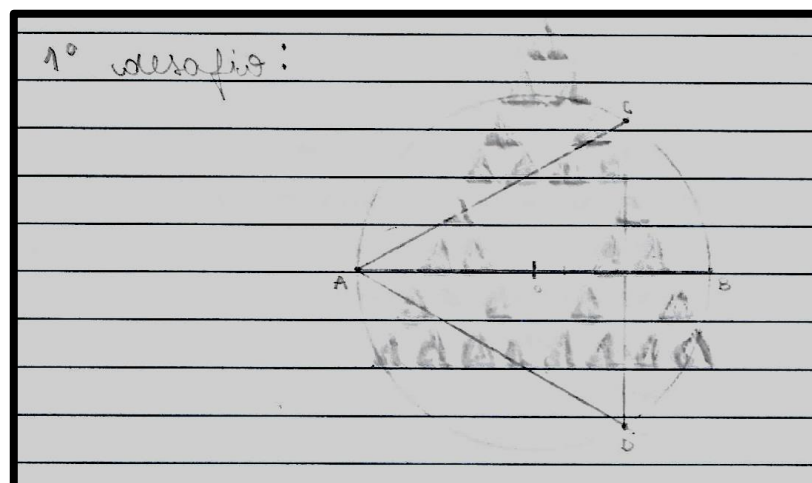 1º desafio:
C
A
B
D